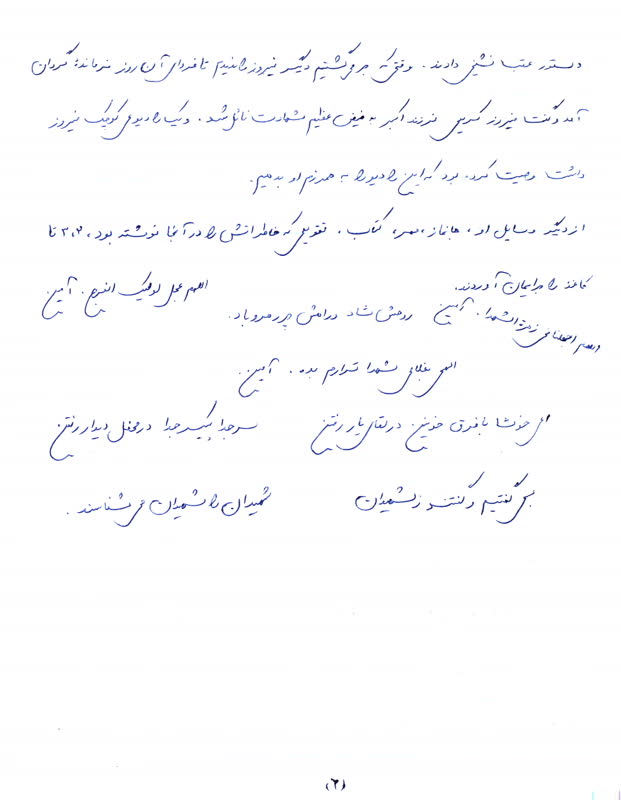 دستور عقب نشینی دادند. وقتی که برمی گشتیم دیگر نیروز را ندیدم تا فردای آن روز فرمانده گردان
آمد و گفت نیروز کریمی فرزند اکبر به فیض عظیم شهادت نائل شد. و یک رادیوی کوچک نیروز
داشت وصیت کرده بود که این رادیو را به همرزم او بدهیم.
از دیگر وسایل او، جانماز، مهر، کتاب، تقویمی که خاطراتش را در آنجا نوشته بود، ۲،۳ تا
کاغذ را برایمان آوردند.
اللهم عجل لولیک الفرج. آمین
اللهم اجعلنا فی زمرة الشهدا. آمین روحش شاد و راهش پر رهرو باد.
الهی بغلامی شهدا قرارم بده. آمین.
ای خوشا با فرق خونین در لقای یار رفتن سر جدا پیکر جدا در محفل دیدار رفتن
بسی گفتیم و گفتند از شهیدان شهیدان را شهیدان می شناسند.
(۲)